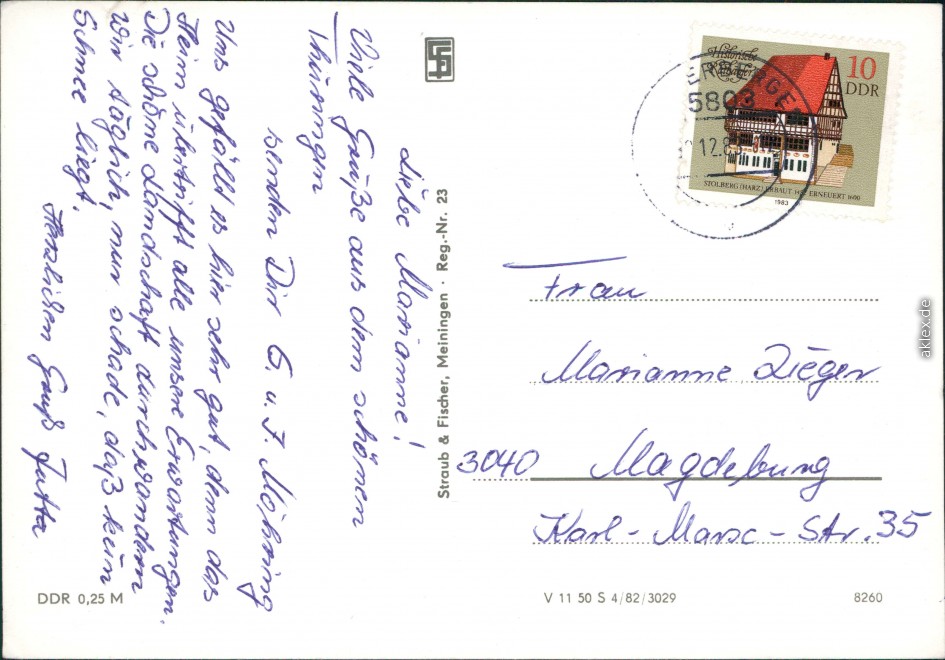 Liebe Marianne!
Viele Grüße aus dem schönen
Thüringen
senden Dir G. u. J. Möhring
Uns gefällt es hier sehr gut, denn das
Heim übertrifft alle unsere Erwartungen.
Die schöne Landschaft durchwandern
wir täglich, nur schade, daß kein
Schnee liegt.
Herzlichen Gruß Jutta
DDR 0,25 M
Straub & Fischer, Meiningen · Reg.-Nr. 23
Historische
Rathäuser
10
DDR
STOLBERG (HARZ) ERBAUT 1482 ERNEUERT 1600
1983
5803
12.8
Frau
Marianne Zieger
3040 Magdeburg
Karl-Marx-Str. 35
V 11 50 S 4/82/3029
8260
aklex.de